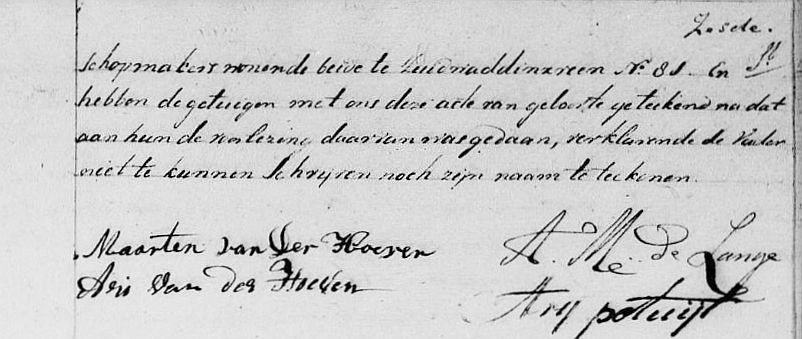 Zesde.
Schopmakers wonende beide te Zuidwaddinxveen No. 81 En St
hebben de getuigen met ons deze acte van geboorte geteekend na dat
aan hun de voorlezing daarvan was gedaan, verklarende de Vader
niet te kunnen Schryven noch zijn naam te teekenen.
Maarten van der Hoeven
A. M. de Lange
Arij Van der Hoeven
Ary